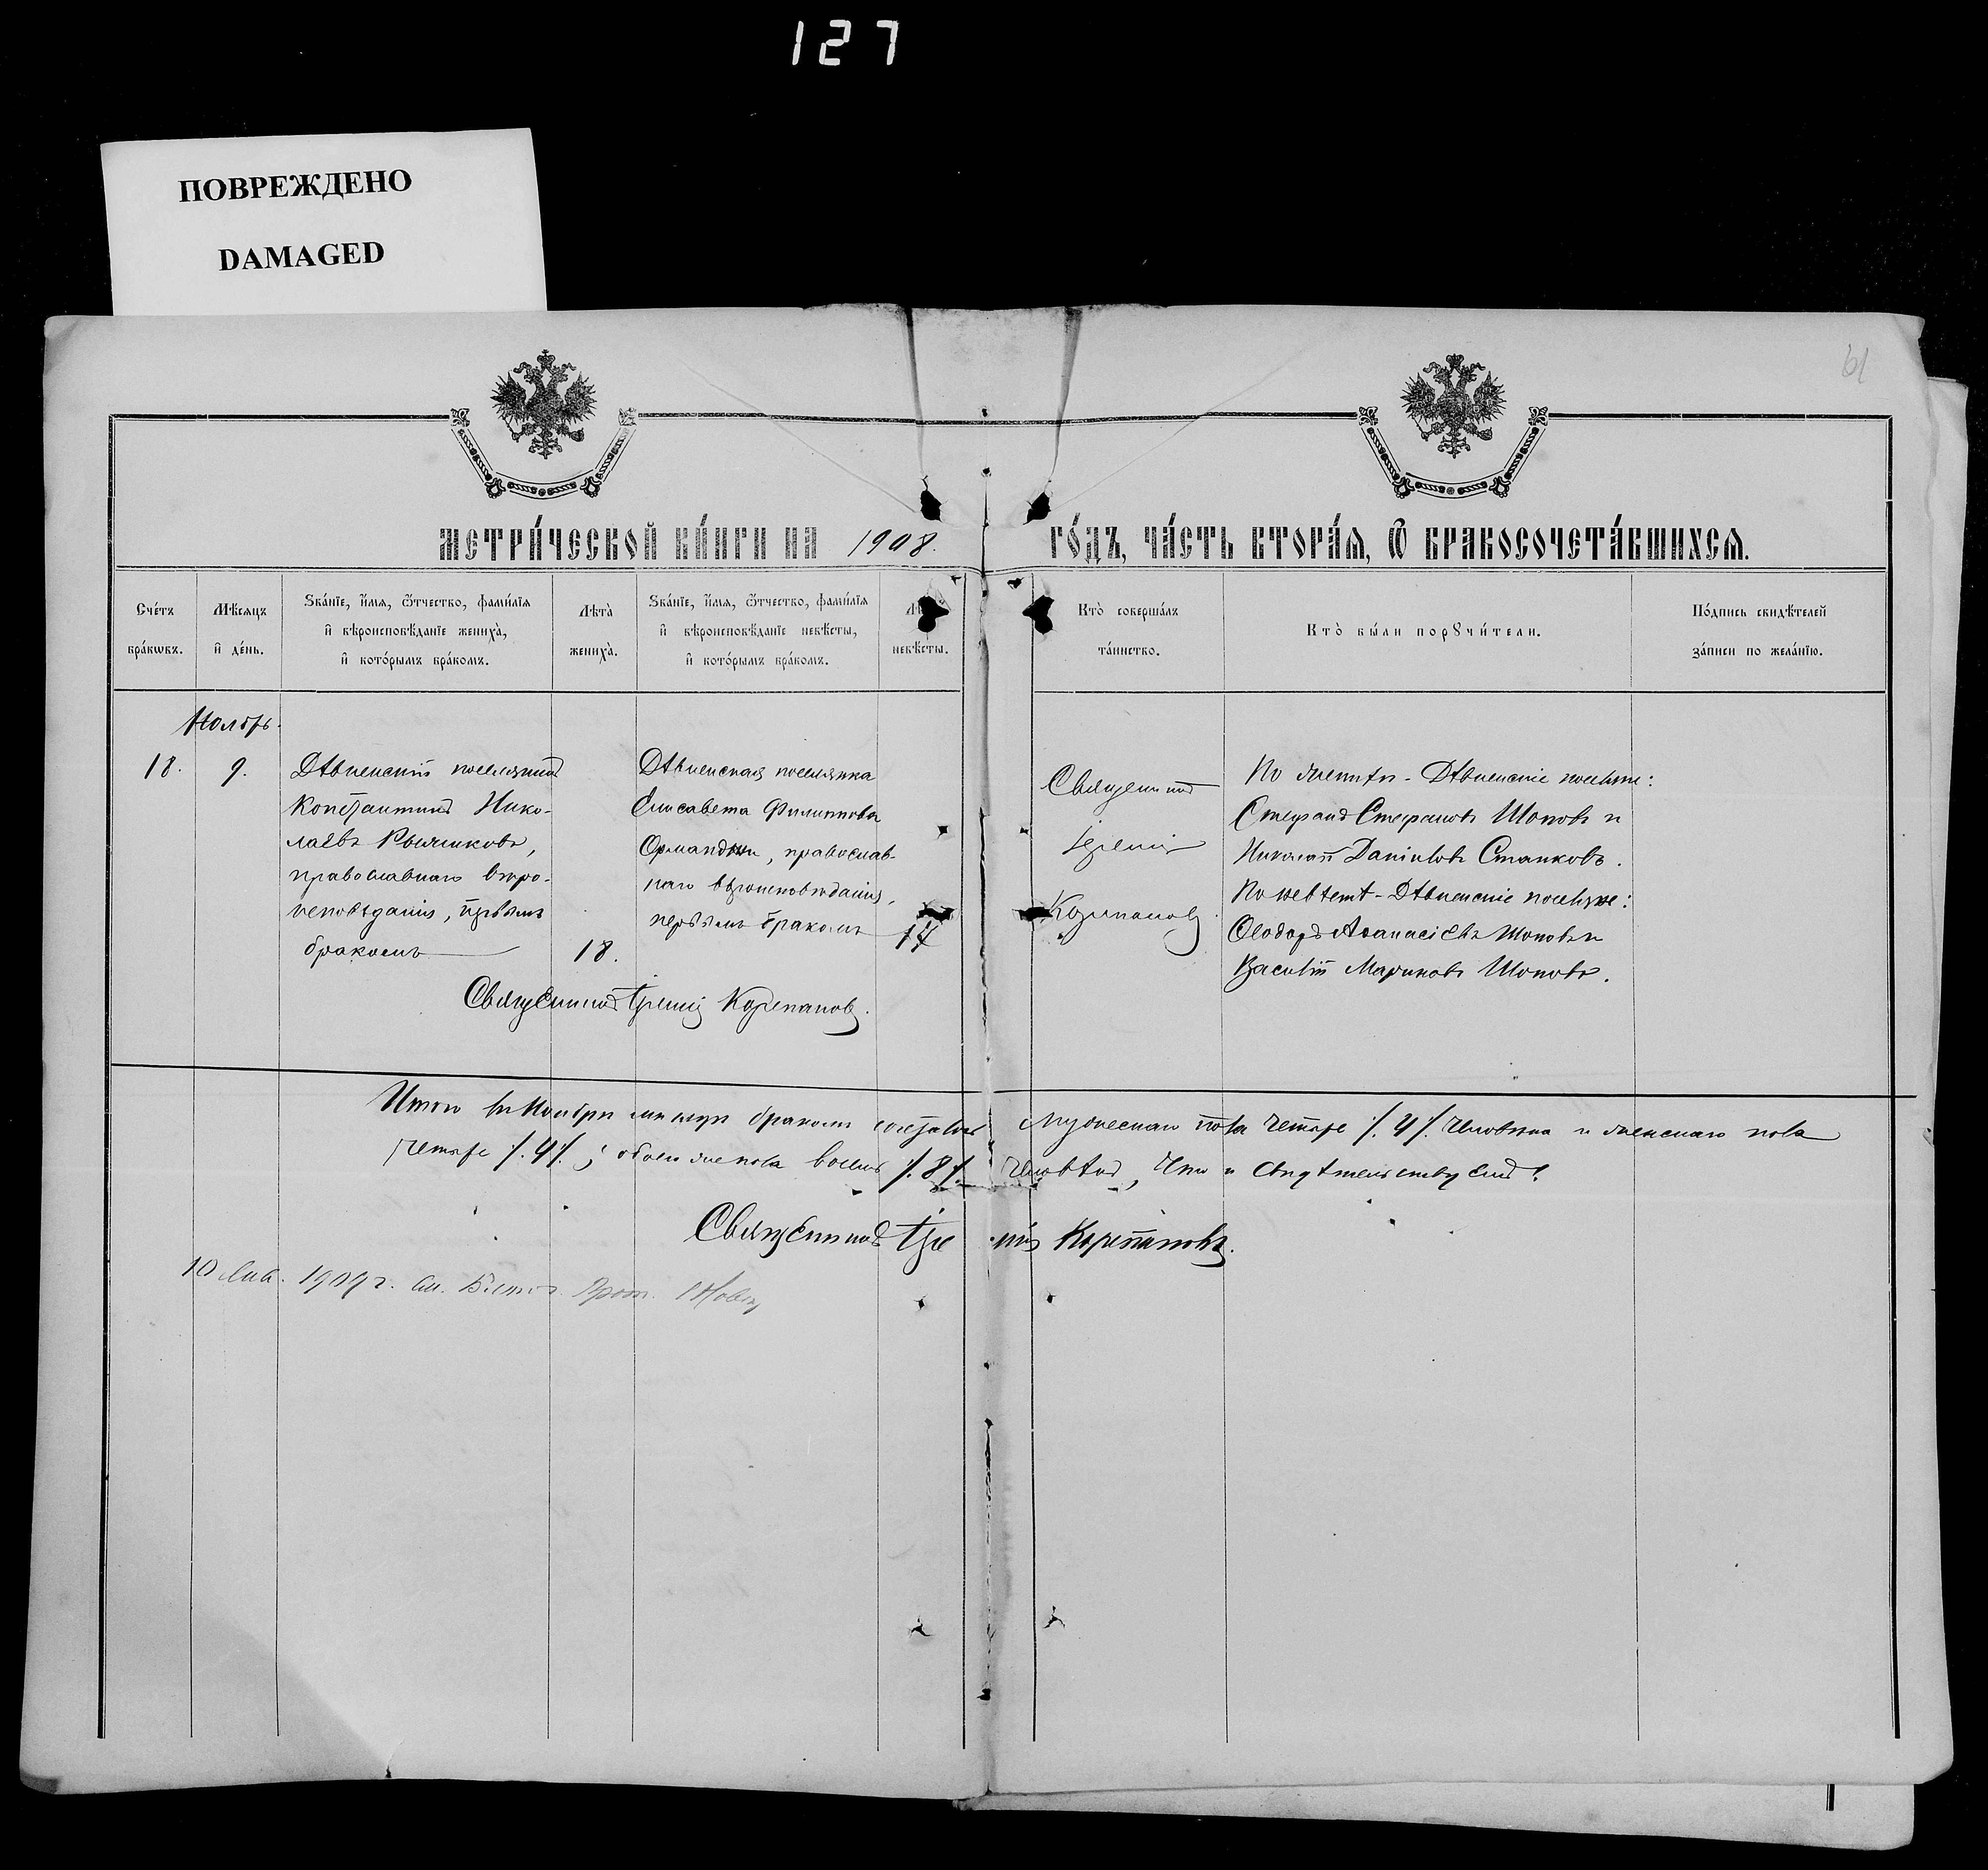 127
ПОВРЕЖДЕНО
DAMAGED
61
МЕТРИ́ЧЕСКОЙ КНИ́ГИ НА 1908. ГО́ДЪ, ЧА́СТЬ ВТОРА́Я, Ѽ БРАКОСОЧЕТА́ВШИХСЯ.
Сче́тъ бра́кѡвъ.
Мѣ́сяцъ и҆ де́нь.
Ѕва́нїе, и҆́мѧ, ѻ҆́тчество, фами́лїѧ
и҆ вѣроисповѣ́данїе жениха̀,
и҆ кото́рымъ бра́комъ.
Лѣта̀ жениха̀.
Ѕва́нїе, и҆́мѧ, ѻ҆́тчество, фами́лїѧ
и҆ вѣроисповѣ́данїе невѣ́сты,
и҆ кото́рымъ бра́комъ.
невѣ́сты.
Кто̀ соверша́лъ
та́инство.
Кто̀ бы́ли порꙋчи́тели.
По́дпись свидѣ́телей
за́писи по жела́нїю.
Ноябрь.
18.
9.
Дѣвненскій поселянинъ
Константинъ Нико-
лаевъ
православнаго вѣро-
исповѣданія, первымъ
бракомъ
18.
Дѣвненская поселянка
Елисавета Филиппова
православ-
наго вѣроисповѣданія,
первымъ бракомъ
17
Священникъ
Іеремія
Корепановъ
По женихѣ - Дѣвненскіе поселяне:
Стефанъ Стефановъ Шоповъ и
Николай Даніиловъ Станковъ.
По невѣстѣ - Дѣвненскіе поселяне:
Ѳеодоръ Аѳанасіевъ Шоповъ и
Василій Мариновъ Шоповъ.
Священникъ Іеремія Корепановъ.
Итого въ Ноябрѣ мѣсяцѣ бракомъ сочеталось мужескаго пола четыре /.4/. человѣка и женскаго пола
четыре /.4/.; обоего же пола восемь /.8/. человѣкъ, что и свидѣтельствуемъ:
Священникъ Іеремія Корепановъ.
10 1909 г. Прот.